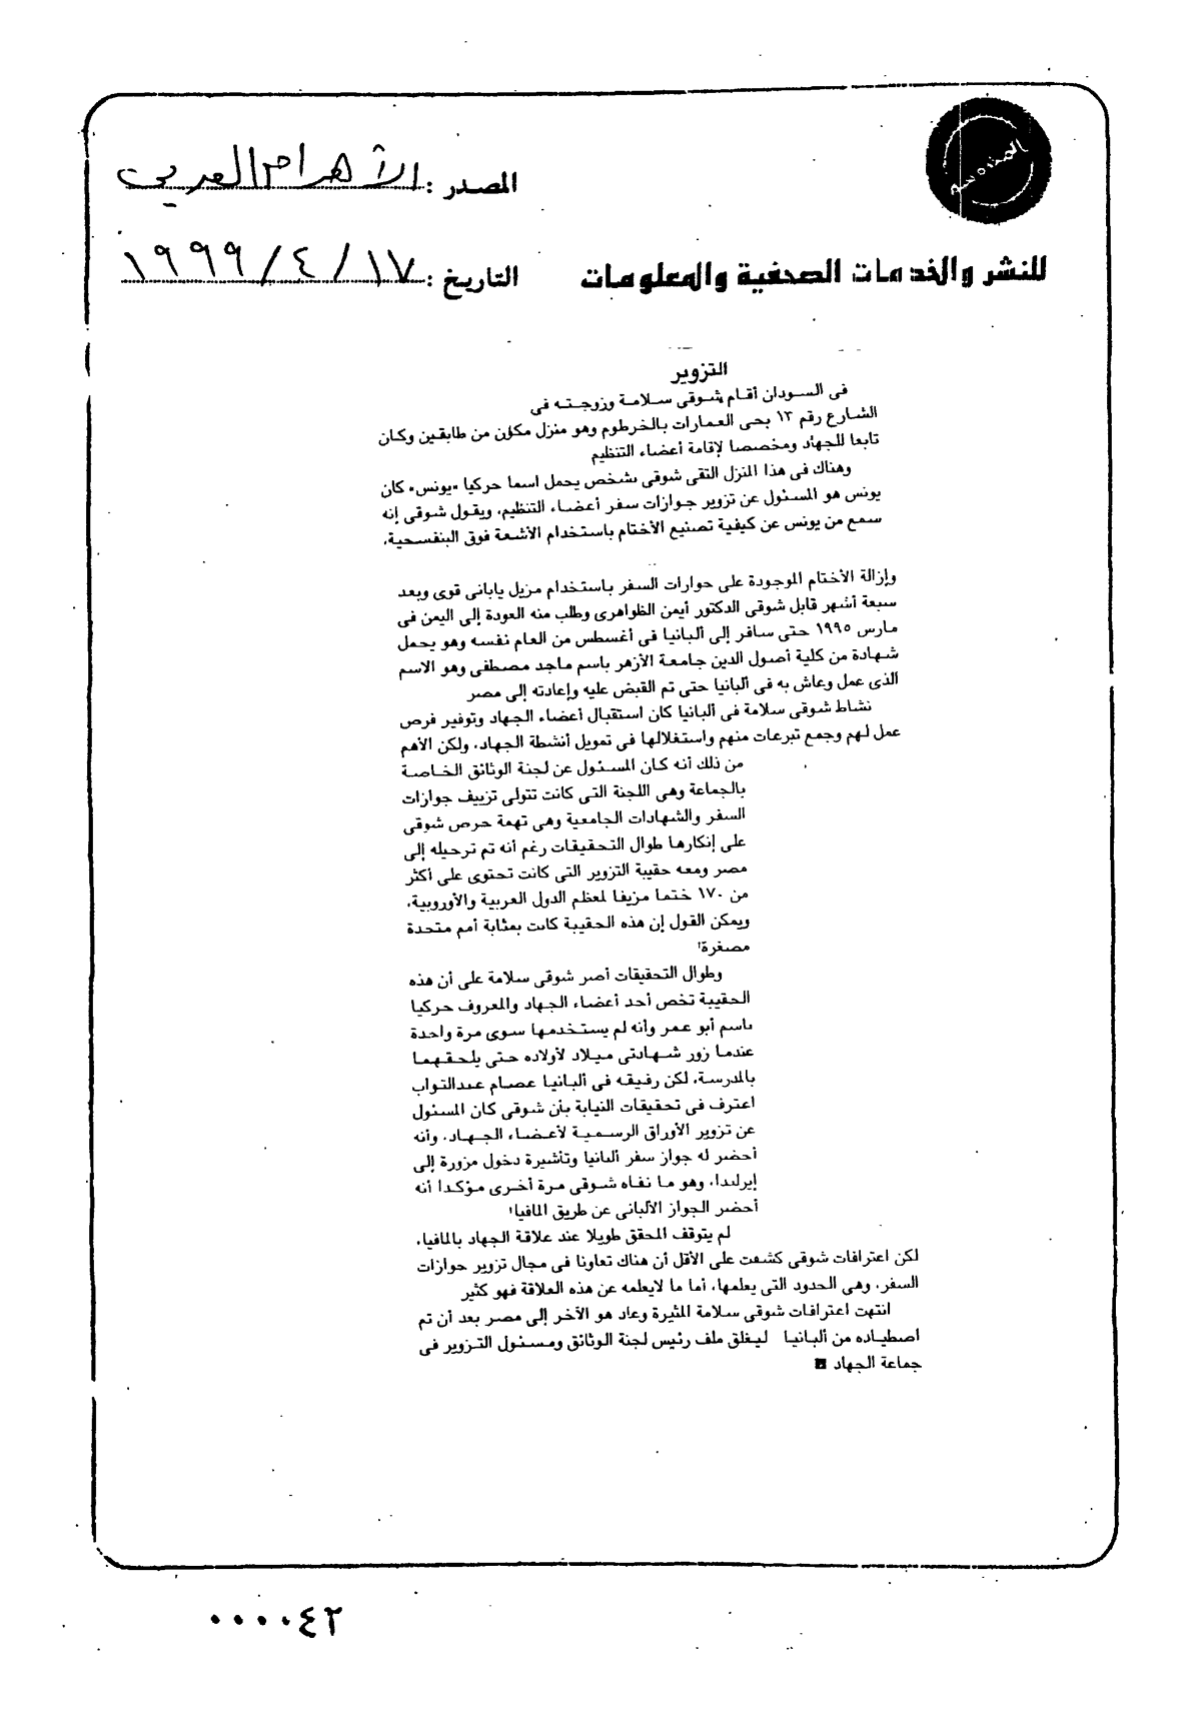 المصدر : الأهرام العربي
التاريخ : ١٩٩٩/٤/١٧
للنشر والخدمات الصحفية والمعلومات
التزوير
فى السودان أقام شوقى سلامة وزوجته فى
الشارع رقم ١٣ بحى العمارات بالخرطوم وهو منزل مكون من طابقين وكان
تابعا للجهاد ومخصصا لإقامة أعضاء التنظيم
وهناك فى هذا المنزل التقى شوقى بشخص يحمل اسما حركيا «يونس» كان
يونس هو المسئول عن تزوير جوازات سفر أعضاء التنظيم، ويقول شوقى إنه
سمع من يونس عن كيفية تصنيع الأختام باستخدام الأشعة فوق البنفسجية،
وإزالة الأختام الموجودة على جوازات السفر باستخدام مزيل يابانى قوى وبعد
سبعة أشهر قابل شوقى الدكتور أيمن الظواهرى وطلب منه العودة إلى اليمن فى
مارس ١٩٩٥ حتى سافر إلى ألبانيا فى أغسطس من العام نفسه وهو يحمل
شهادة من كلية أصول الدين جامعة الأزهر باسم ماجد مصطفى وهو الاسم
الذى عمل وعاش به فى ألبانيا حتى تم القبض عليه وإعادته إلى مصر
نشاط شوقى سلامة فى ألبانيا كان استقبال أعضاء الجهاد وتوفير فرص
عمل لهم وجمع تبرعات منهم واستغلالها فى تمويل أنشطة الجهاد، ولكن الأهم
من ذلك أنه كان المسئول عن لجنة الوثائق الخاصة
بالجماعة وهى اللجنة التى كانت تتولى تزييف جوازات
السفر والشهادات الجامعية وهى تهمة حرص شوقى
على إنكارها طوال التحقيقات رغم أنه تم ترحيله إلى
مصر ومعه حقيبة التزوير التى كانت تحتوى على أكثر
من ١٧٠ ختما مزيفا لمعظم الدول العربية والأوروبية،
ويمكن القول إن هذه الحقيبة كانت بمثابة أمم متحدة
مصغرة!
وطوال التحقيقات أصر شوقى سلامة على أن هذه
الحقيبة تخص أحد أعضاء الجهاد والمعروف حركيا
باسم أبو عمر وأنه لم يستخدمها سوى مرة واحدة
عندما زور شهادتى ميلاد لأولاده حتى يلحقهما
بالمدرسة، لكن رفيقه فى ألبانيا عصام عبدالتواب
اعترف فى تحقيقات النيابة بأن شوقى كان المسئول
عن تزوير الأوراق الرسمية لأعضاء الجهاد، وأنه
أحضر له جواز سفر ألبانيا وتأشيرة دخول مزورة إلى
إيرلندا، وهو ما نفاه شوقى مرة أخرى مؤكدا أنه
أحضر الجواز الألبانى عن طريق المافيا!
لم يتوقف المحقق طويلا عند علاقة الجهاد بالمافيا،
لكن اعترافات شوقى كشفت على الأقل أن هناك تعاونا فى مجال تزوير جوازات
السفر، وهى الحدود التى يعلمها، أما ما لايعلمه عن هذه العلاقة فهو كثير
انتهت اعترافات شوقى سلامة المثيرة وعاد هو الآخر إلى مصر بعد أن تم
اصطياده من ألبانيا ليغلق ملف رئيس لجنة الوثائق ومسئول التزوير فى
جماعة الجهاد
٠٠٠٠٤٢